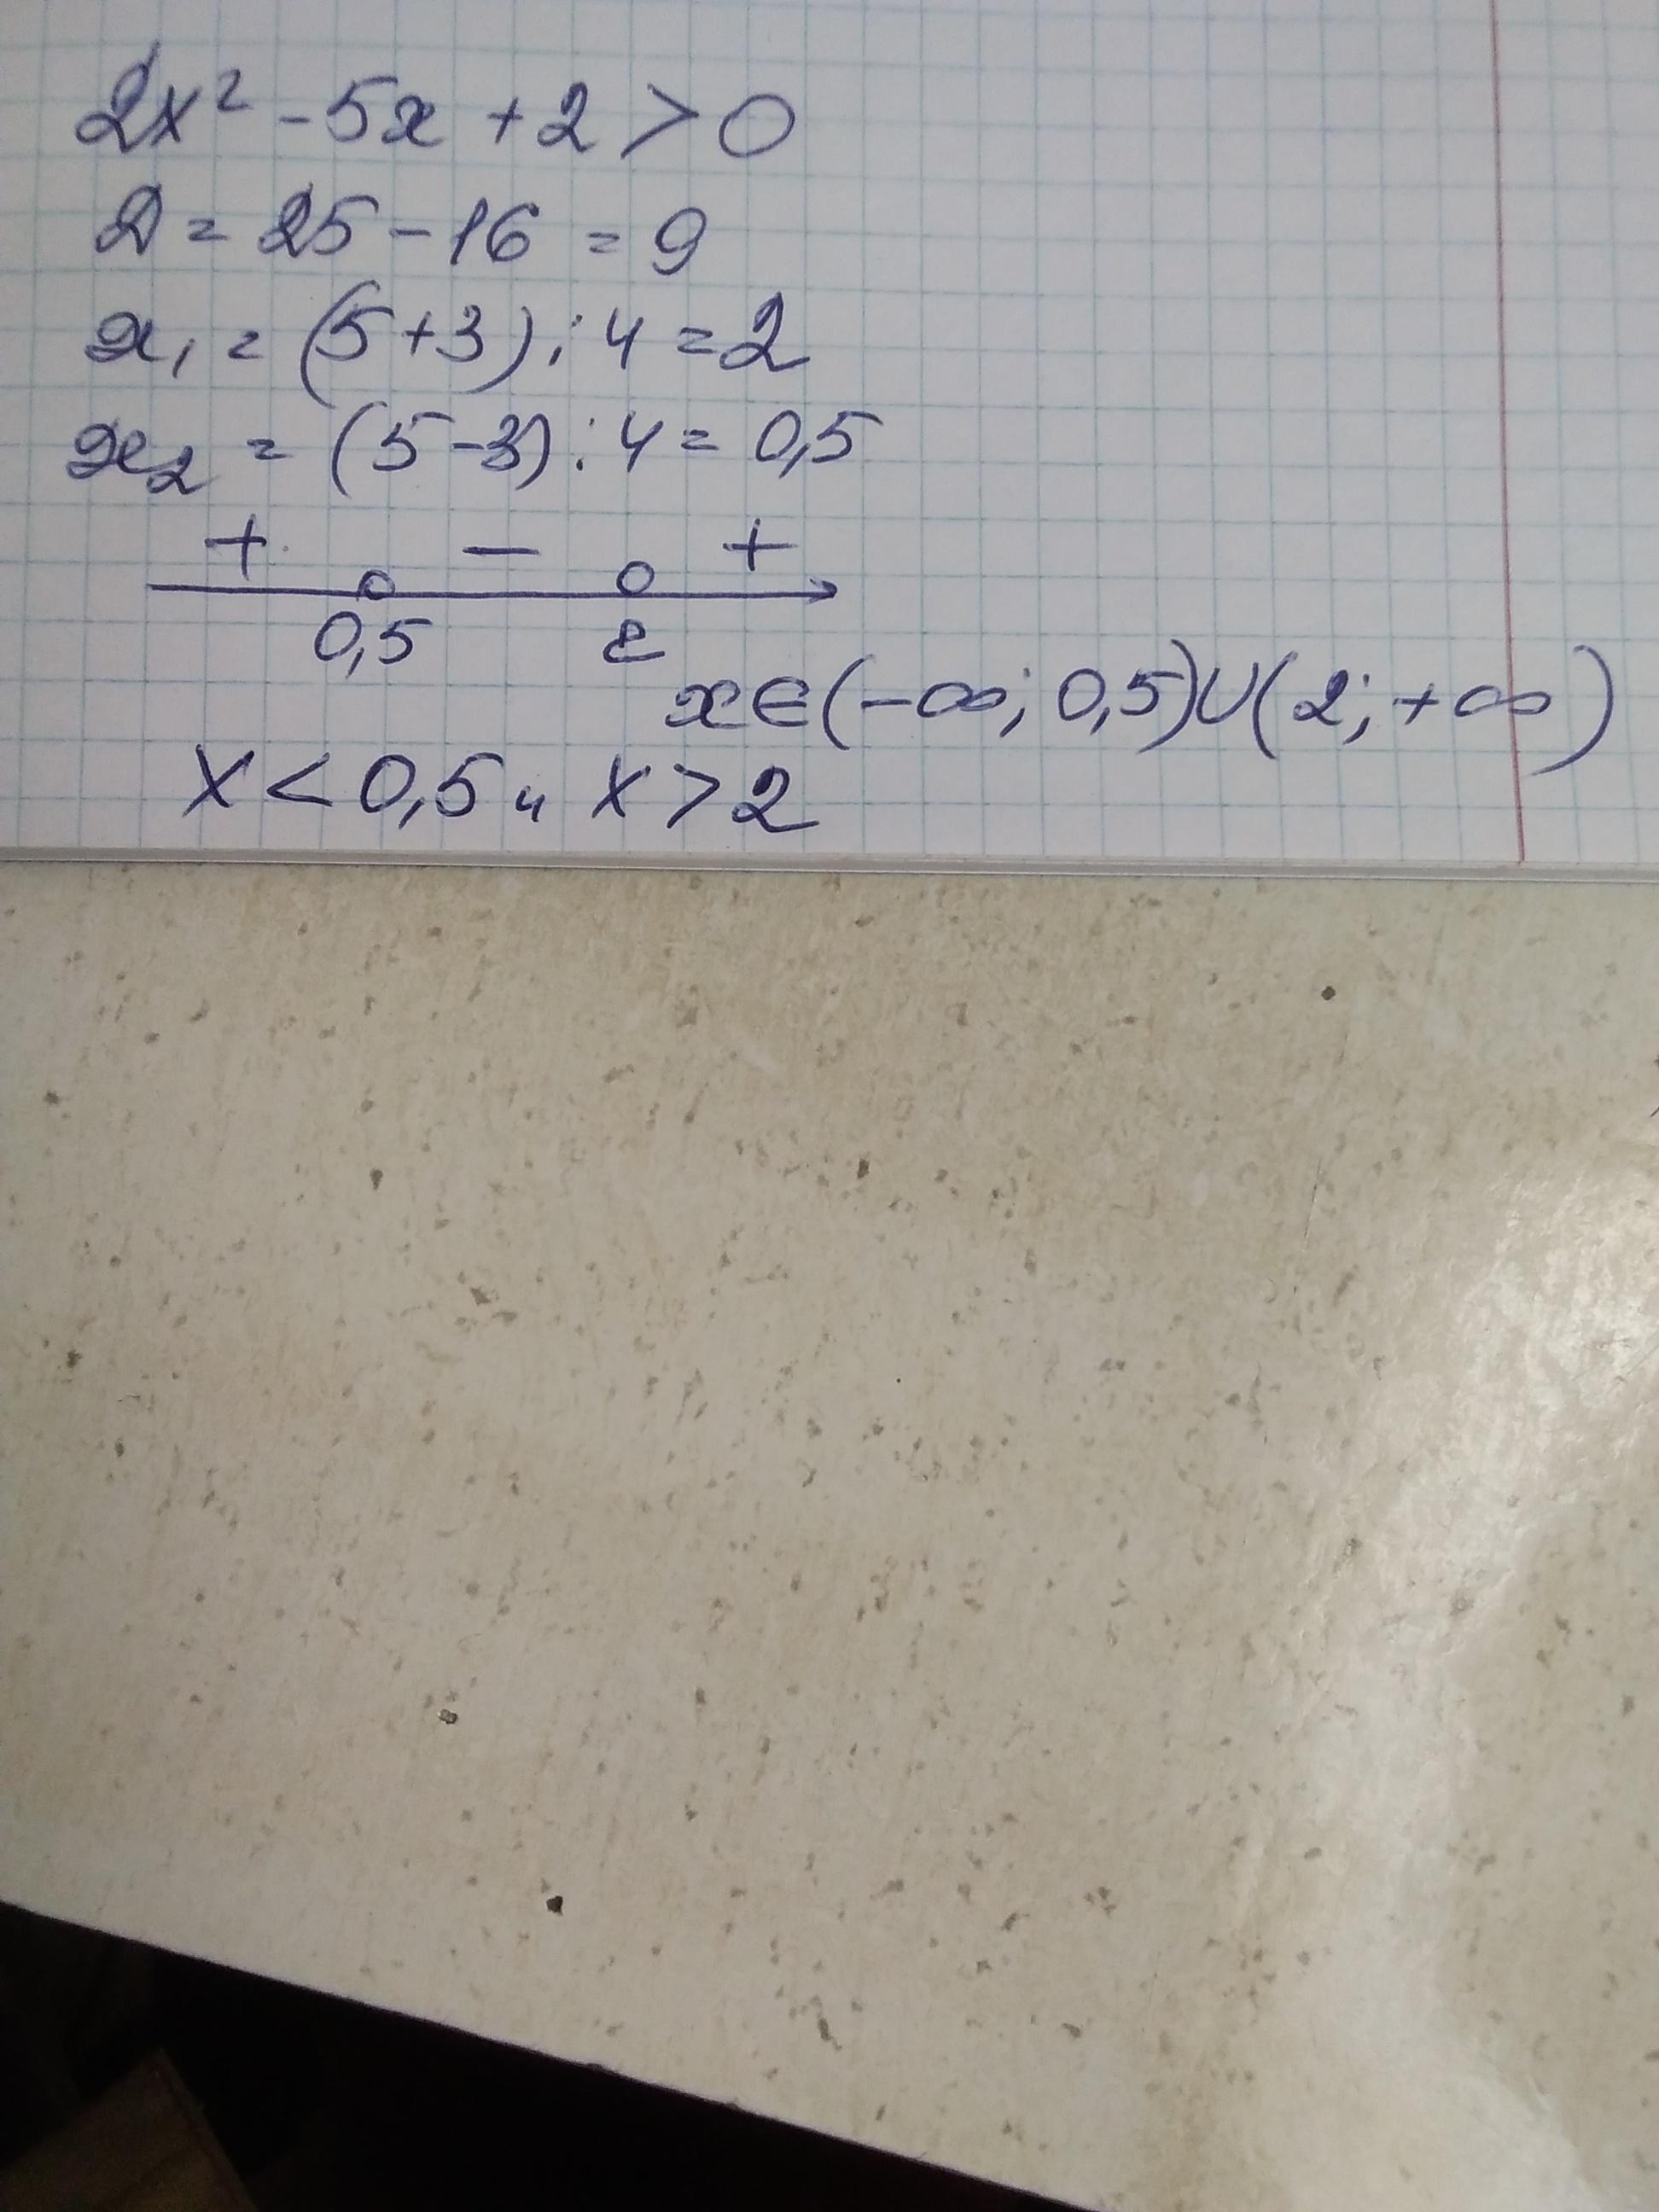 2x² - 5x + 2 > 0
D = 25 - 16 = 9
x₁ = (5+3) : 4 = 2
x₂ = (5-3) : 4 = 0,5
+ - +
0,5 2
x∈(-∞; 0,5)∪(2; +∞)
x < 0,5 и x > 2